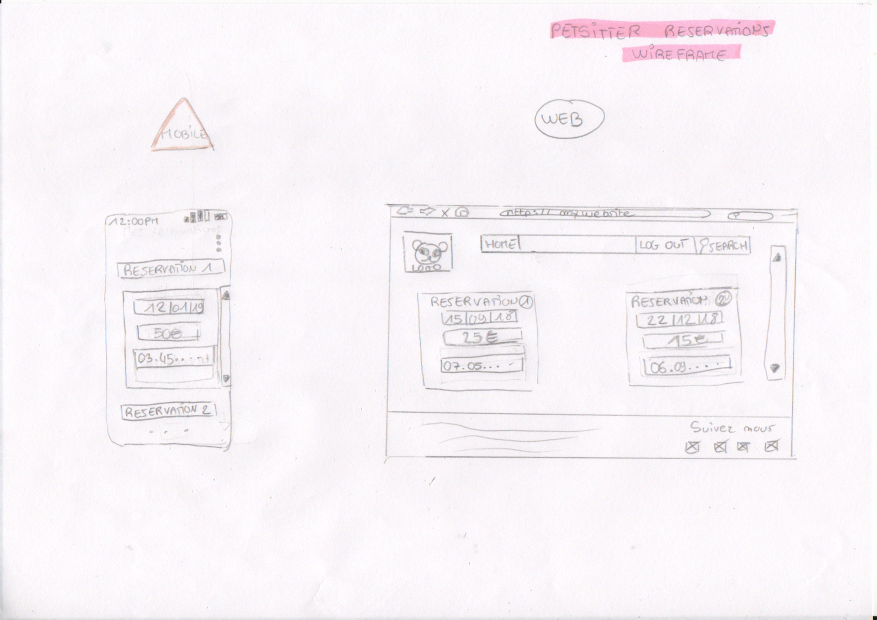 PETSITTER RESERVATIONS
WIREFRAME
MOBILE
WEB
12:00PM
RESERVATION 1
12/01/19
50€
03.45.....
RESERVATION 2
. . .
https:// mywebsite
LOGO
HOME
LOG OUT
SEARCH
RESERVATION 1
15/09/18
25€
07.05....
RESERVATION 2
22/12/18
15€
06.09....
Suivez nous